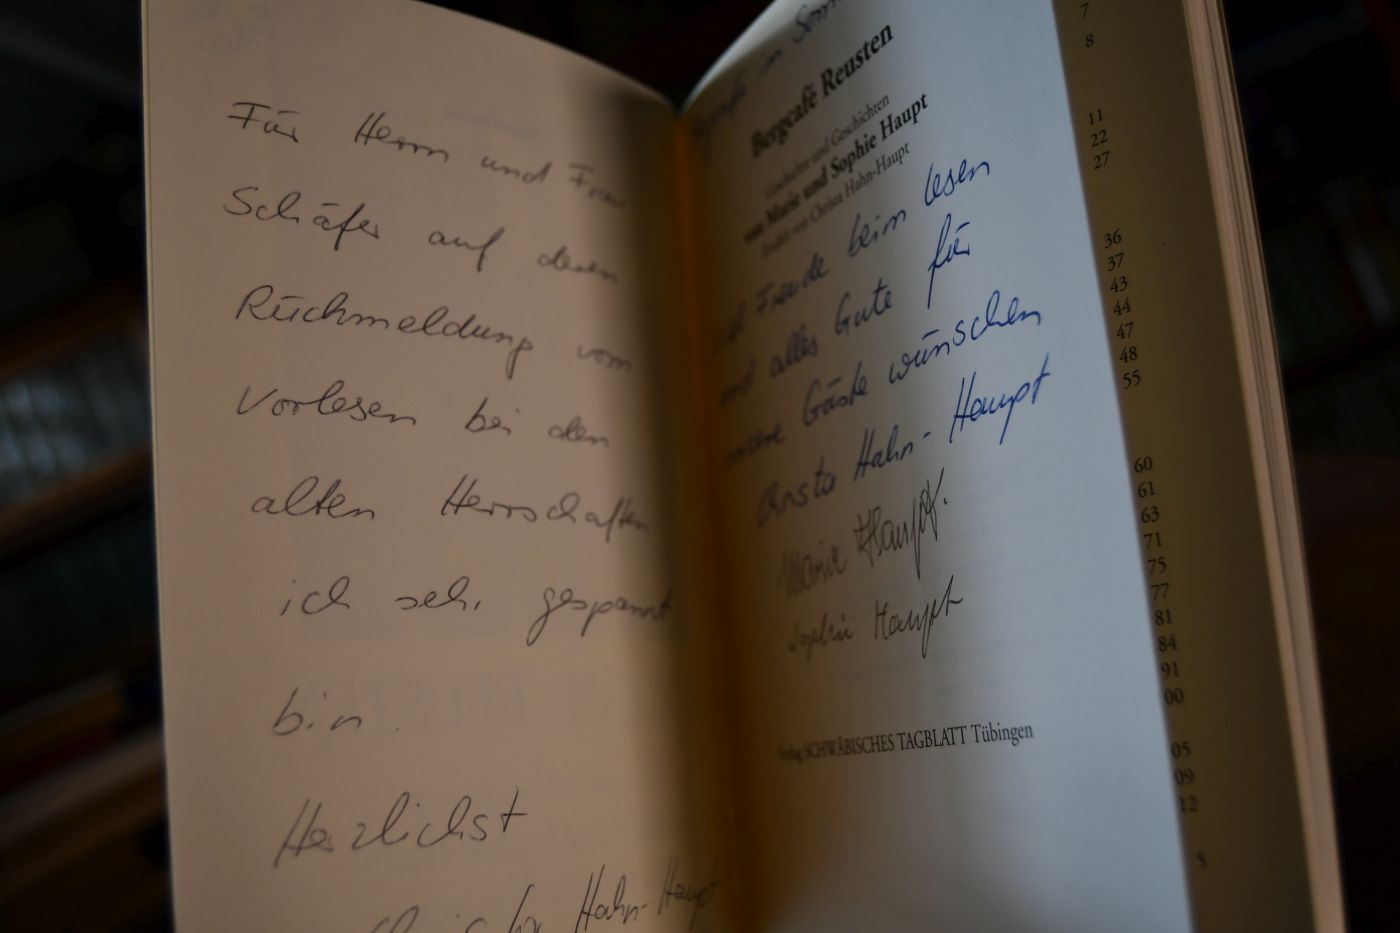 Für Herrn und Frau
Schäfer auf deren
Rückmeldung vom
Vorlesen bei den
alten Herrschaften
ich sehr gespannt
bin.
Herzlichst
Christa Hahn-Haupt
im
Bergcafé Reusten
Geschichte und Geschichten
von Marie und Sophie Haupt
Erzählt von Christa Hahn-Haupt
Freude beim lesen
und alles Gute für
unsere Gäste wünschen
Christa Hahn-Haupt
Marie Haupt.
Sophie Haupt
Verlag SCHWÄBISCHES TAGBLATT Tübingen
7
8
11
22
27
36
37
43
44
47
48
55
60
61
63
71
75
77
81
84
91
00
05
09
12
5